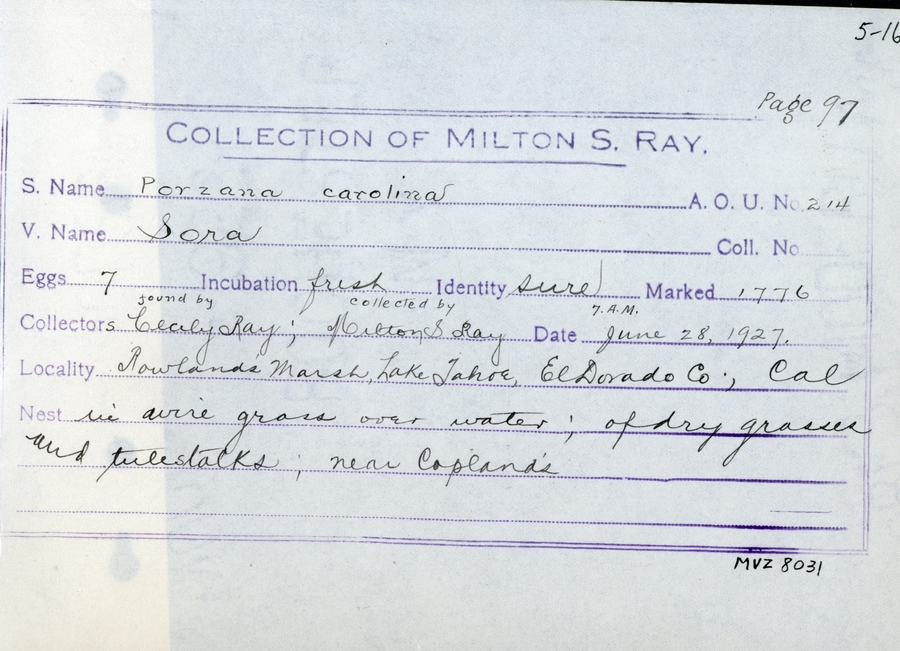 5-16
Page 97
COLLECTION OF MILTON S. RAY.
S. Name Porzana carolina A. O. U. No. 214
V. Name Sora Coll. No
Eggs 7 Incubation fresh Identity sure Marked 1776
found by collected by 7. A.M.
Collectors Cecily Ray; Milton S Ray Date June 28, 1927.
Locality Rowlands Marsh, Lake Tahoe, El Dorado Co; Cal
Nest in wire grass over water; of dry grasses
and tulestalks; near Copland's
MVZ 8031